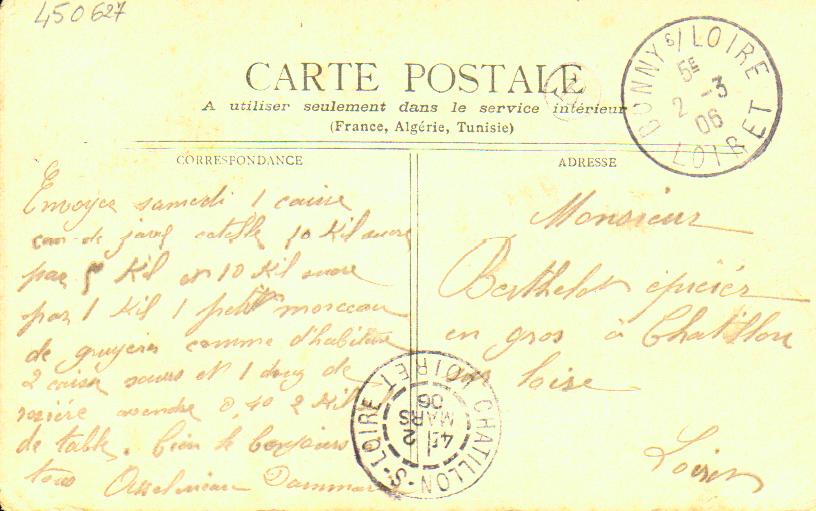 450627
CARTE POSTALE
A utiliser seulement dans le service intérieur
(France, Algérie, Tunisie)
CORRESPONDANCE
Envoyez samedi 1 caisse
10 Kil sucre
par 5 Kil et 10 Kil sucre
par 1 Kil 1 petit morceau
de gruyère comme d'habitude
2 caisse et 1 de
0,40 2 Kil
de table. bien le bonjours
tous
ADRESSE
Monsieur
Berthelot épicier
en gros à Chatillon
sur loire
Loiret
BONNY S/ LOIRE
5E
2 -3
06
LOIRET
CHATILLON-S-LOIRE
LOIRET
2
MARS
06